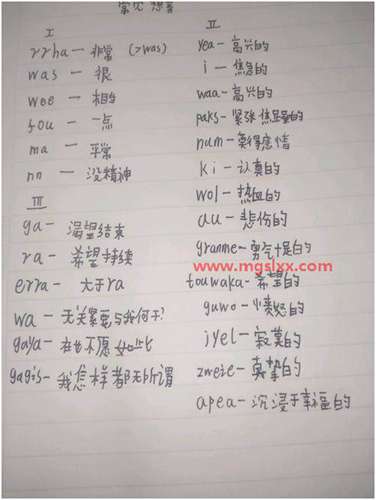 常见想音
I
rrha — 非常 (>was)
was — 很
wee — 相当
fou — 一点
ma — 平常
nn — 没精神
III
ga — 渴望结束
ra — 希望持续
erra — 大于ra
wa — 无关紧要与我何干?
gaya — 在也不愿如此
gagis — 我怎样都无所谓
II
yea — 高兴的
i — 焦急的
waa — 高兴的
paks — 紧张焦虑的
num — 莫得感情
ki — 认真的
wol — 热血的
au — 悲伤的
granme — 勇气十足的
www.mgslxx.com
touwaka — 希望的
guwo — 愤怒的
jyel — 寂寞的
zweie — 真挚的
apea — 沉浸于幸福的